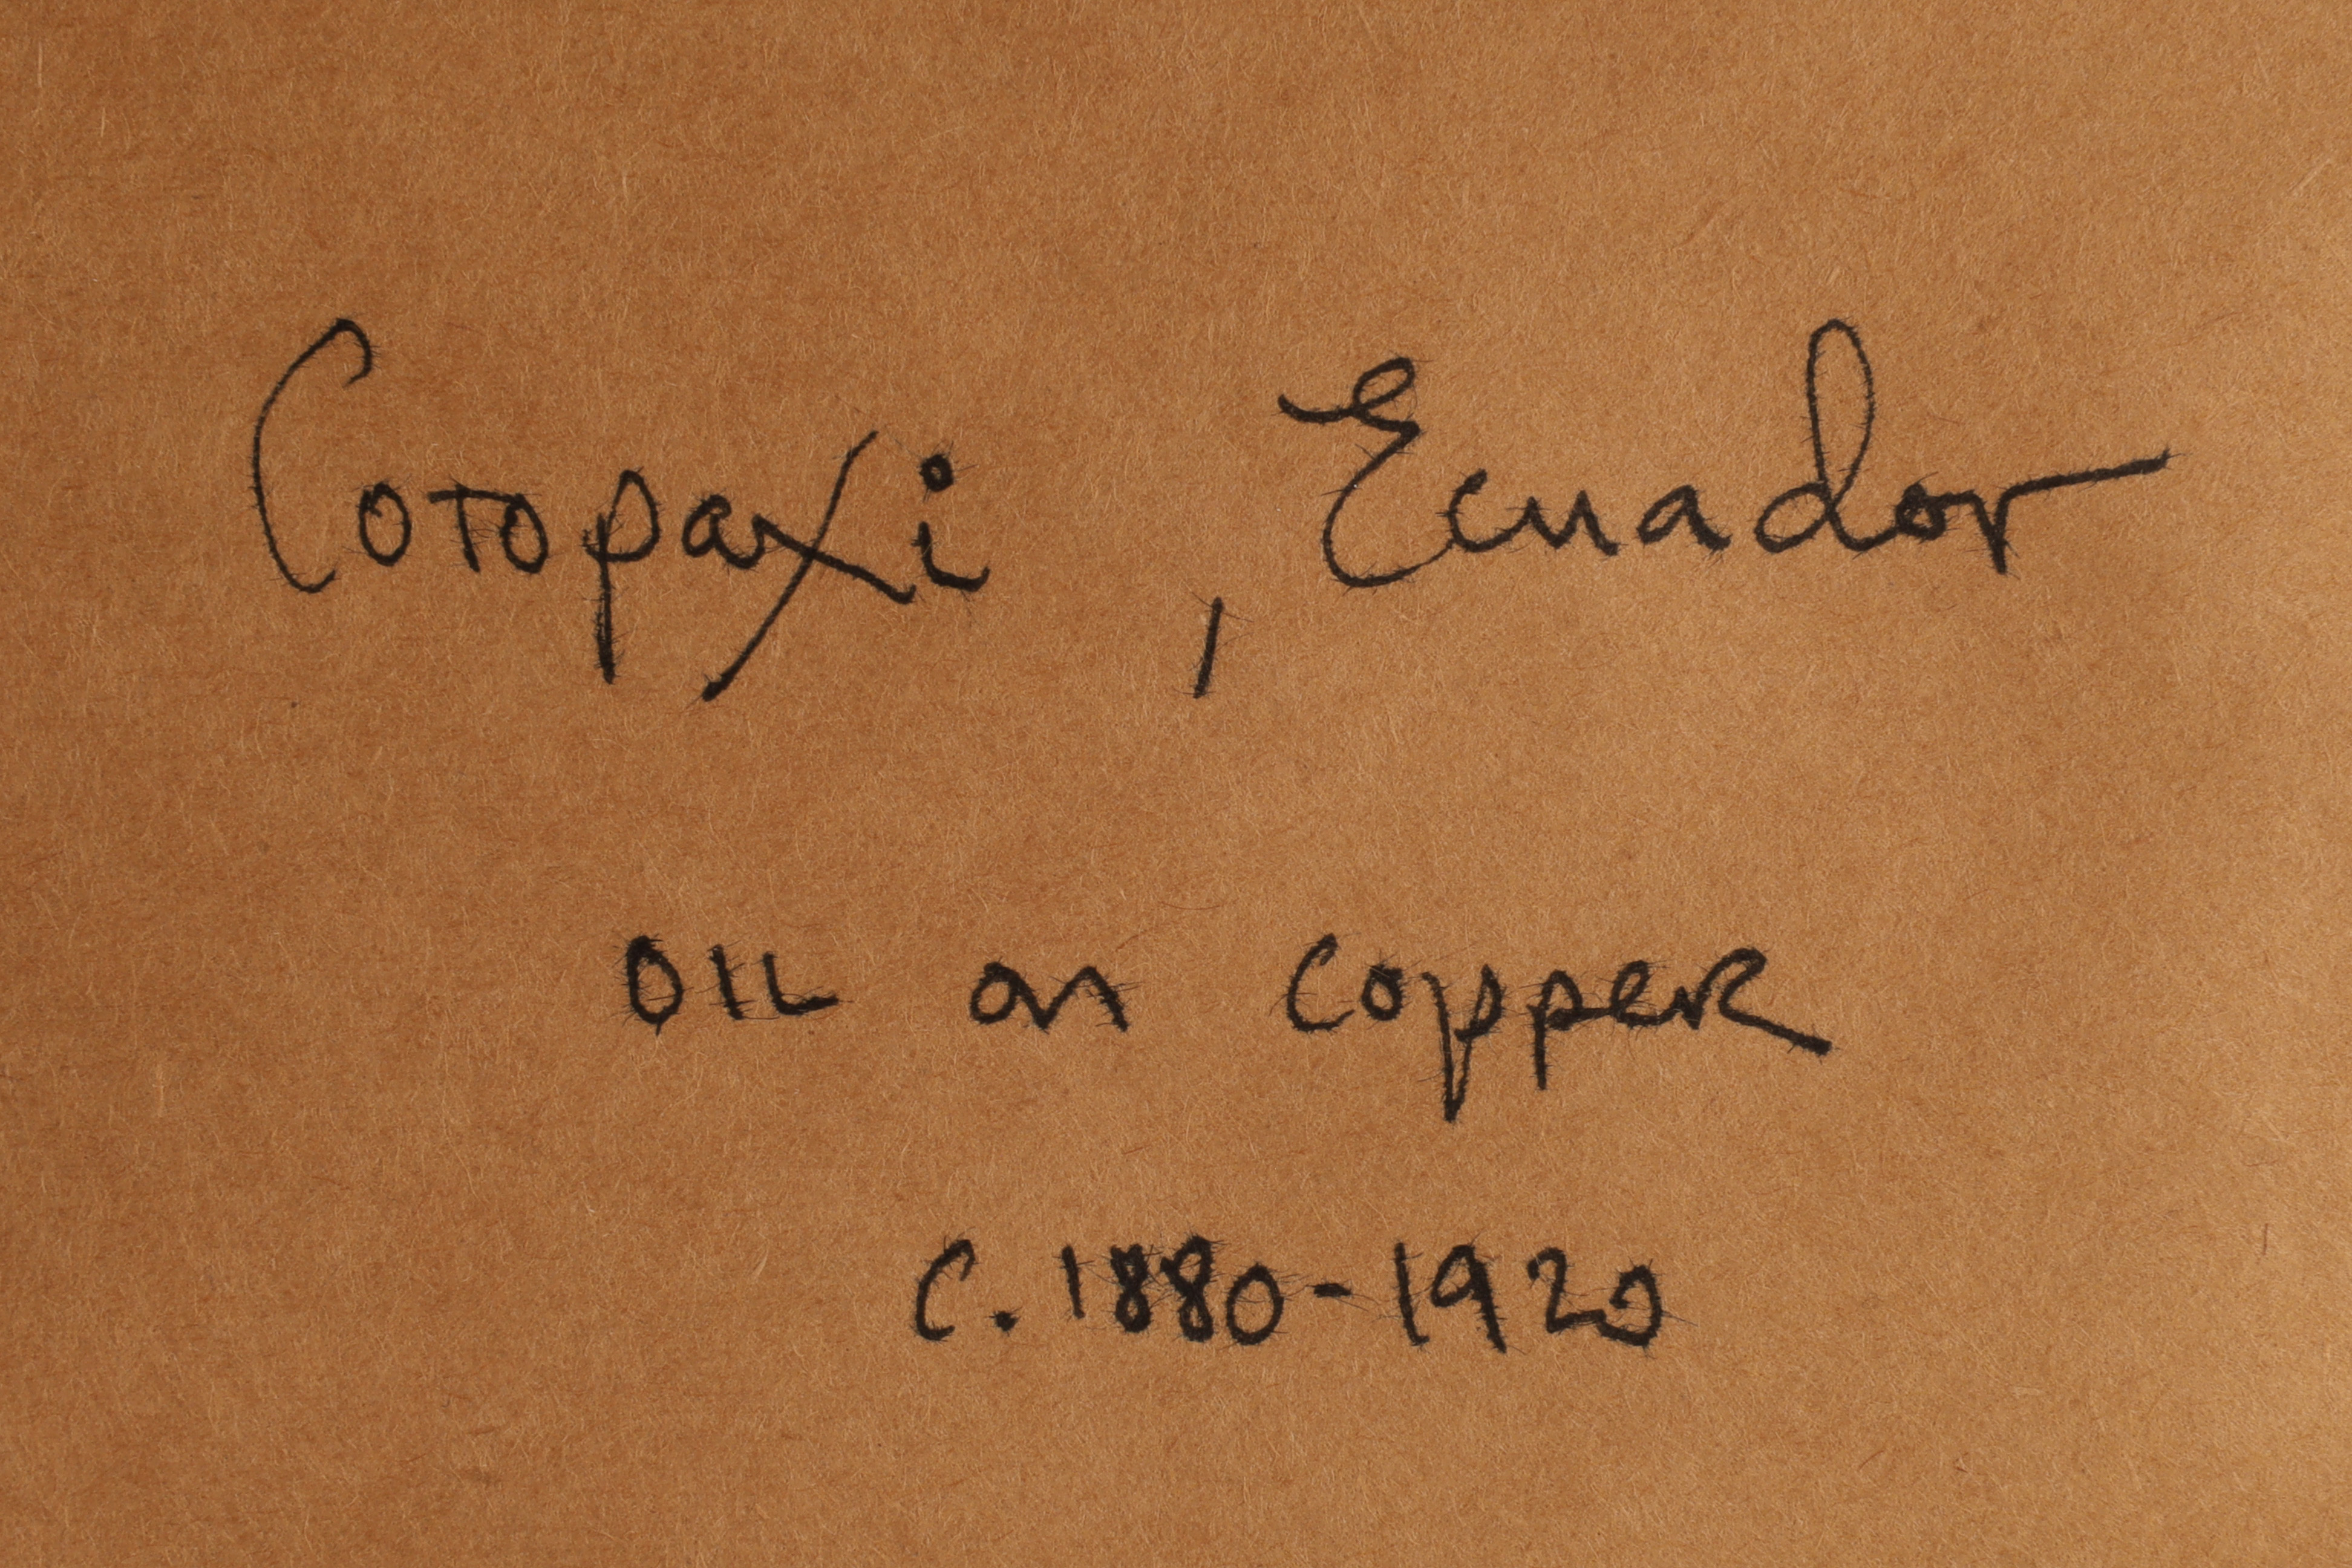 Cotopaxi, Ecuador
OIL on Copper
C. 1880-1920